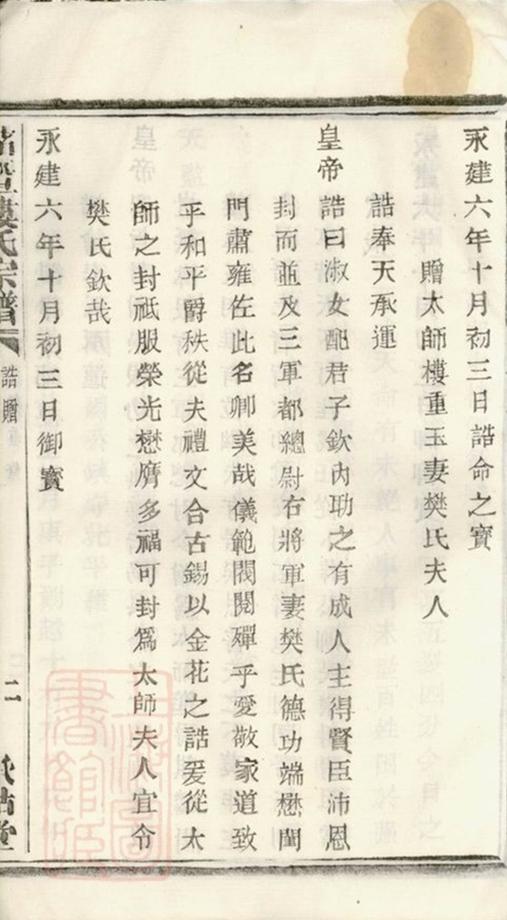 永建六年十月初三日誥命之寳
贈太師樓重玉妻樊氏夫人
誥奉天承運
皇帝誥曰淑女配君子欽内助之有成人主得賢臣沛恩
封而並及三軍都總尉右將軍妻樊氏德功端懋閨
門肅雍佐此名卿美哉儀範閥閱殫乎愛敬家道致
乎和平爵秩從夫禮文合古錫以金花之誥爰從太
師之封祗服榮光懋膺多福可封爲太師夫人宜令
樊氏欽哉
永建六年十月初三日御寳
氏宗譜
誥贈
二